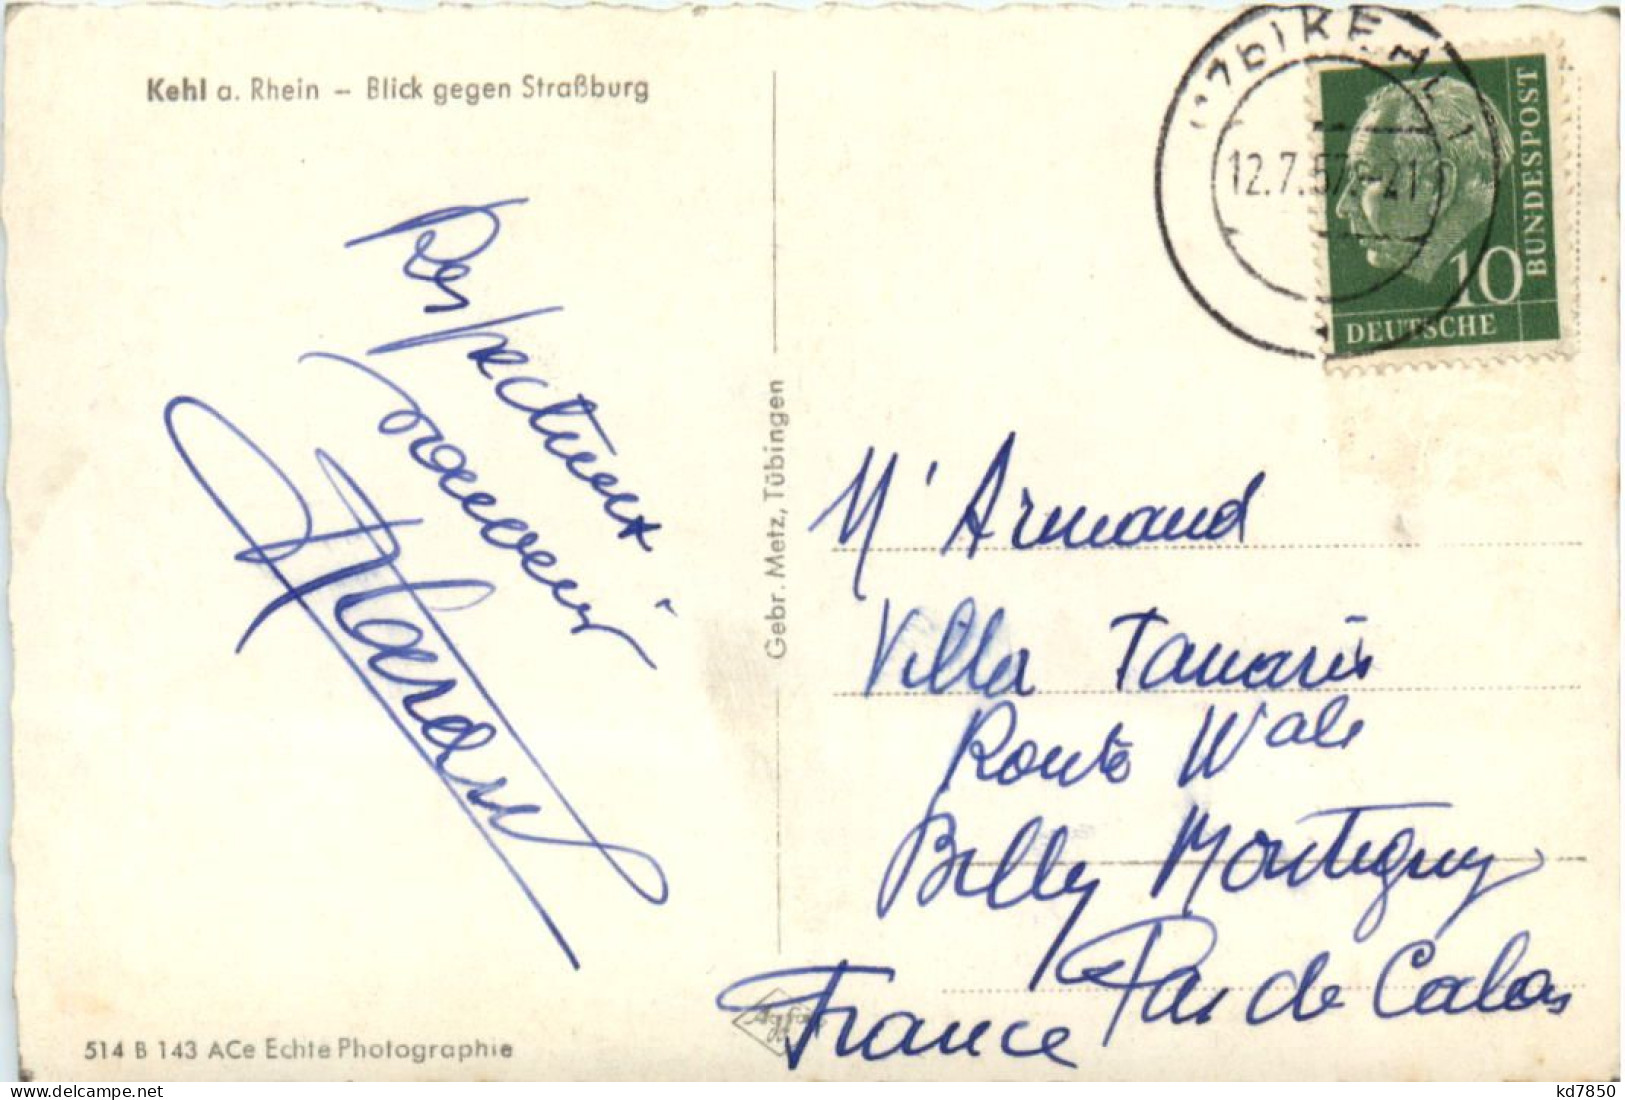 Kehl a. Rhein – Blick gegen Straßburg
KEHL
12.7.57
-21
BUNDESPOST
10
DEUTSCHE
Respectueux
souvenir
Gebr. Metz, Tübingen
M' Armand
Villa Tamaris
Route Wale
Billy Montigny
Pas de Calais
France
514 B 143 ACe Echte Photographie
kd7850